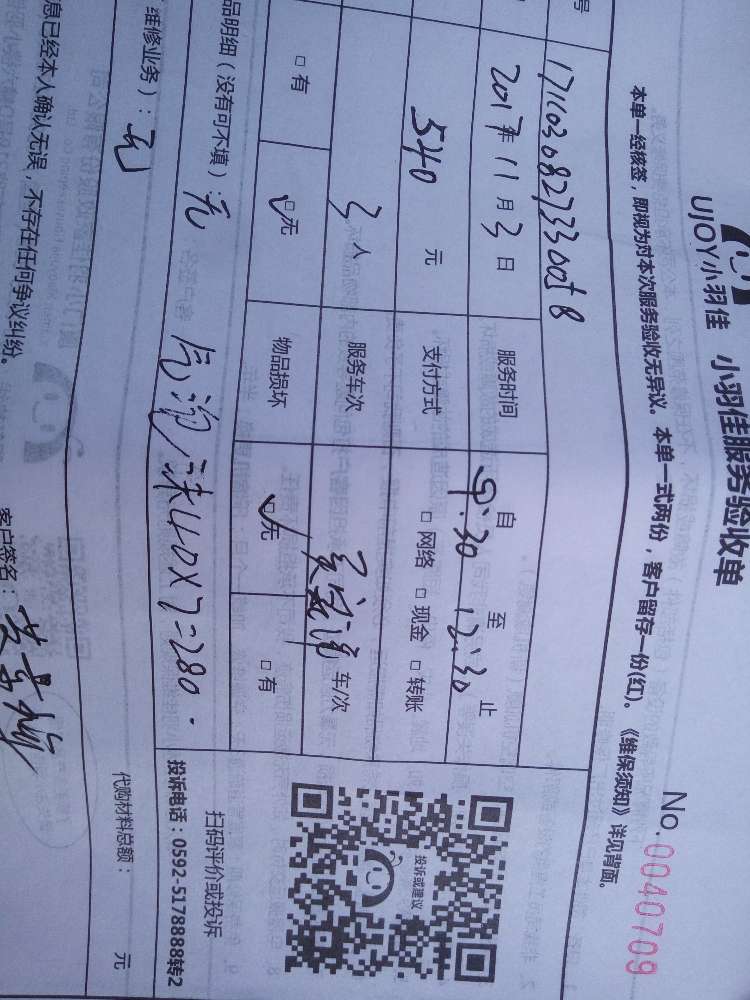 UJOY小羽佳 小羽佳服务验收单
No.0040709
本单一经核签，即视为对本次服务验收无异议。本单一式两份，客户留存一份(红)。《维保须知》详见背面。
号
2017年11月3日 服务时间 自 9:30 至 12:30 止
540 元 支付方式 □ 网络 □ 现金 □ 转账
3 人 服务车次 车/次
□ 有 □无 物品损坏 □无 □ 有
品明细（没有可不填）: 无 40×7=280.
维修业务）: 无
代购材料总额： 元
投诉或建议
扫码评价或投诉
投诉电话：0592-5178888转2
息已经本人确认无误，不存在任何争议纠纷。
客户签名：